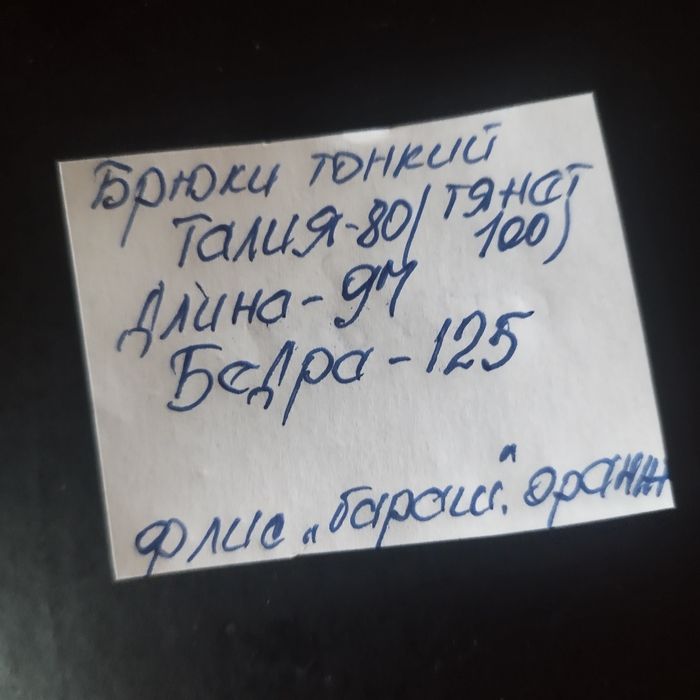 Брюки тонкий
Талия-80( тянат
100)
Длина-94
Бедра-125
Флис „бараш“. оранж